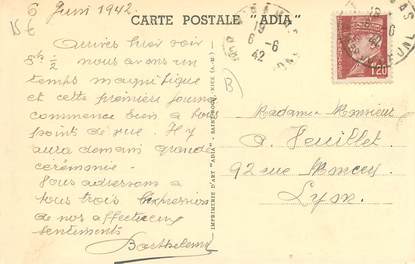 6 Juin 1942.
CARTE POSTALE "ADIA"
Arrivés hier soir
5h ½
nous avons un
temps magnifique
et cette première journée
commence bien à tous
point de vue. Il y
aura demain grande
cérémonie.
Nous adressons à
tous trois l'expression
de nos affectueux
sentiments
Barthelemy
IMPRIMERIE D'ART "ADIA"
19
6-6
42
1,20
B
Madame Monsieur
A. Feuillet
92 rue Moncey
Lyon.